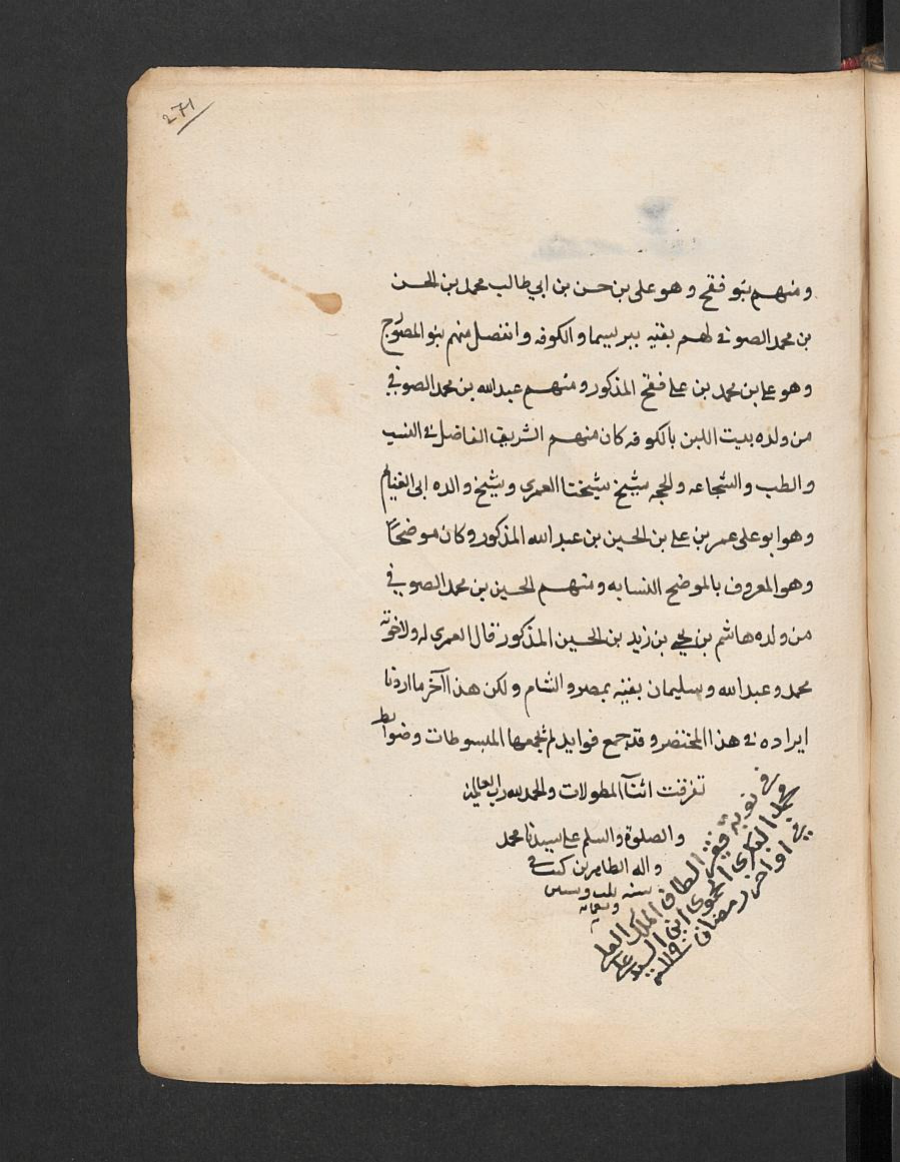 271
ومنهم بنو فقح وهو على بن حسن بن ابي طالب محمد بن الحسن
بن محمد الصوفى لهم بقيه ببرسيما والكوفه وانفصل منهم بنو المصورح
وهو على بن محمد بن على فقح المذكور ومنهم عبدالله بن محمد الصوفي
من ولده بيت اللبن بالكوفه كان منهم الشريف الفاضل فى النسب
والطب والشجاعه والحجه شيخ شيخنا العمرى وشيخ والده ابى الغنايم
وهو ابو على عمر بن على بن الحسين بن عبد الله المذكور وكان موضحًا
وهو المعروف بالموضح النسابه ومنهم الحسين بن محمد الصوفي
من ولده هاشم بن يحيى بن زيد بن الحسين المذكور قال العمرى له ولاخوته
محمد وعبد الله وسليمان بقيه بمصر والشام ولكن هذا آخر ما اردنا
ايراده فى هذا المختصر وقد جمع فوايد لم تجمعها المبسوطات وضوابط
تفرقت اثنآ المطولات والحمد لله رب العالمين
والصلوة والسلم على سيدنا محمد
واله الطاهرين كتب فى
سنه وستين
وثمانه
فى نوبة فقير الطاف الملك العلى
محمد البكرى الحموى ابن السيد على
فى اواخر رمضان